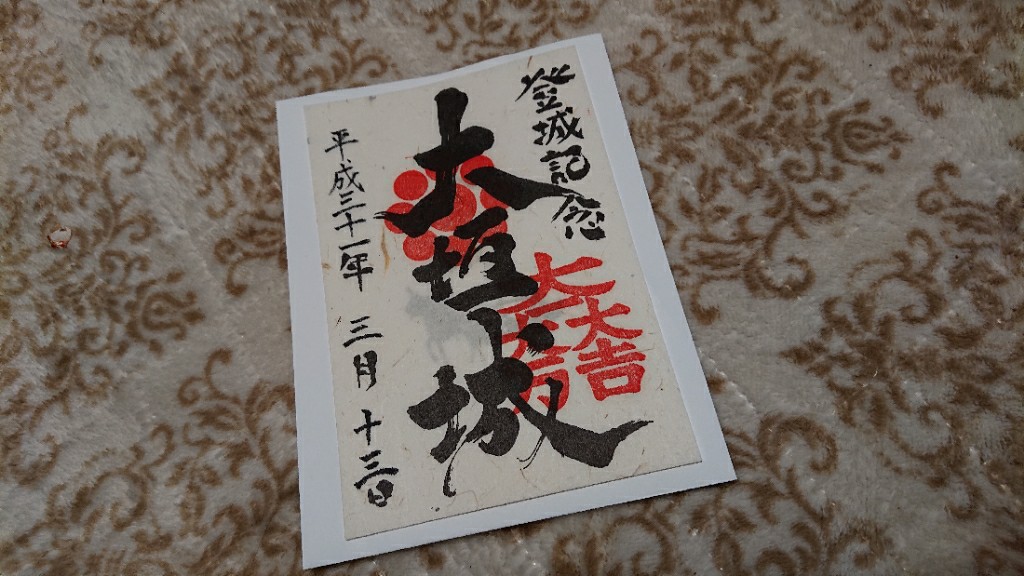 登城記念
大一大万大吉
大垣城
平成三十一年 三月 十三日